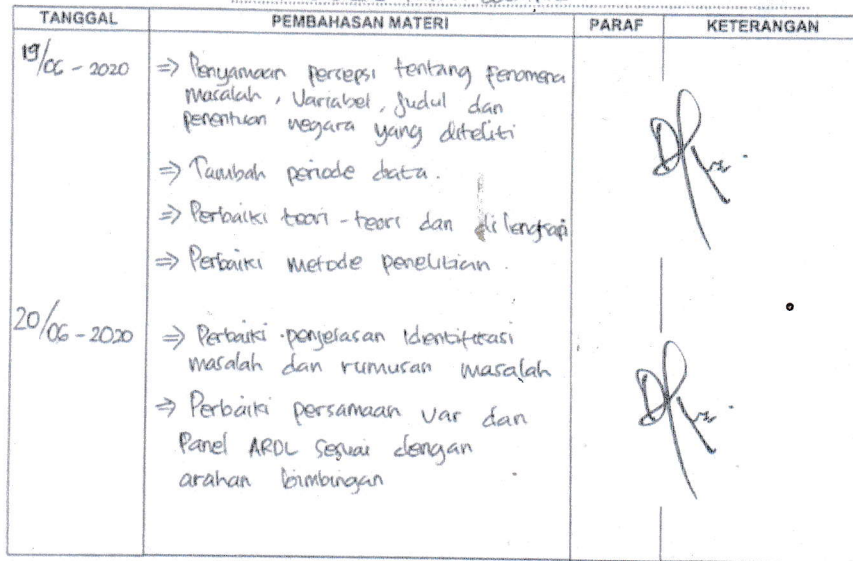 TANGGAL PEMBAHASAN MATERI PARAF KETERANGAN
19/06 - 2020 => Penyamaan persepsi tentang fenomena
masalah, Variabel, Judul dan
penentuan negara yang diteliti
=> Tambah periode data.
=> Perbaiki teori-teori dan dilengkapi
=> Perbaiki metode penelitian.
20/06 - 2020 => Perbaiki penjelasan Identifikasi
masalah dan rumusan masalah
=> Perbaiki persamaan Var dan
Panel ARDL Sesuai dengan
arahan bimbingan